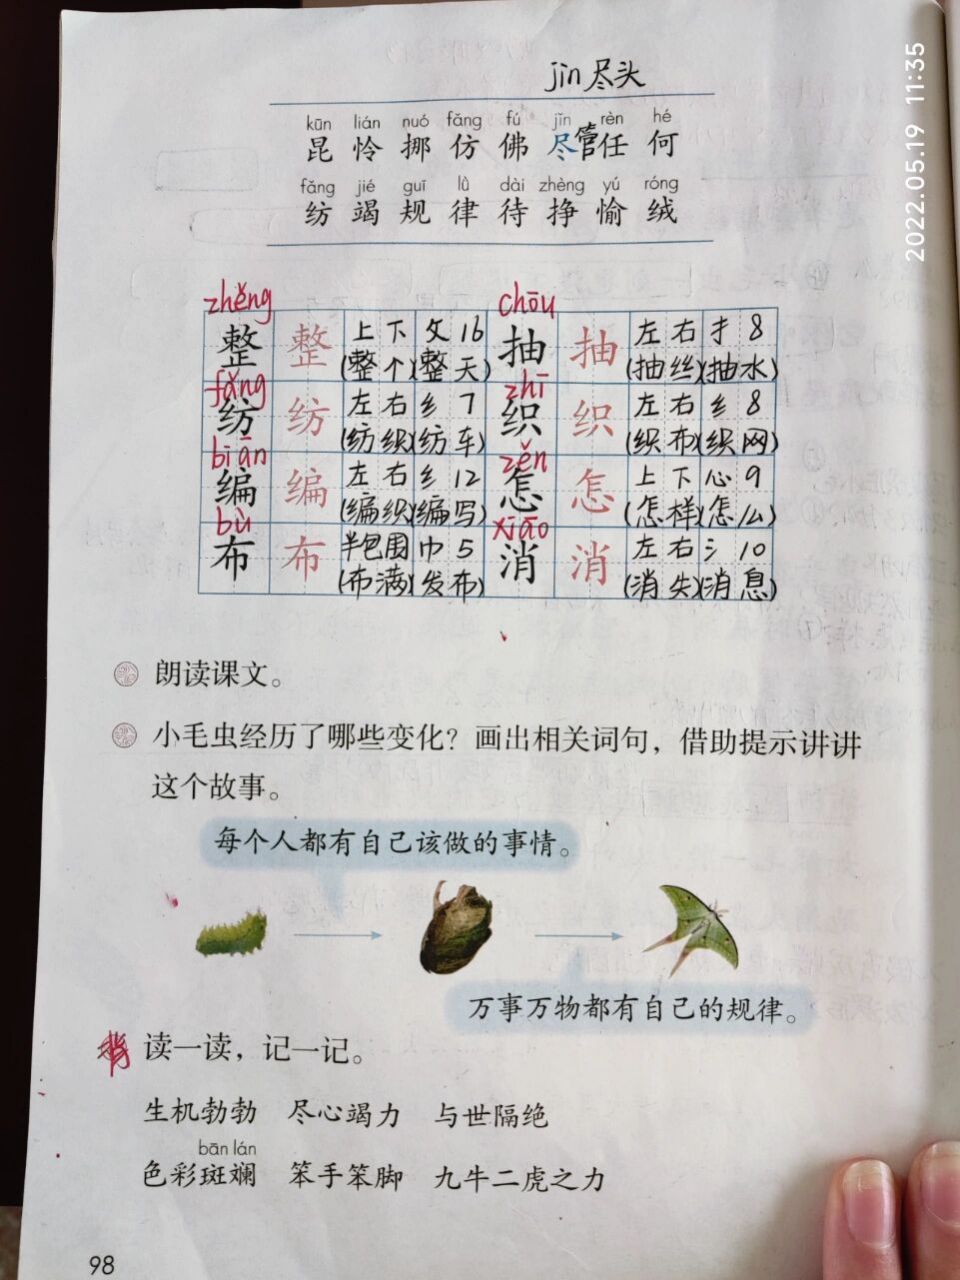 2022.05.19 11:35
jìn 尽头
kūn lián nuó fǎng fú jǐn rèn hé
昆 怜 挪 仿 佛 尽管 任 何
fǎng jié guī lǜ dài zhèng yú róng
纺 竭 规 律 待 挣 愉 绒
zhěng chōu
整 整 上下 攵 16 抽 抽 左右 扌 8
(整个)(整天) (抽丝)(抽水)
fǎng zhī
纺 纺 左右 纟 7 织 织 左右 纟 8
(纺织)(纺车) (织布)(织网)
biān zěn
编 编 左右 纟 12 怎 怎 上下 心 9
(编织)(编写) (怎样)(怎么)
bù xiāo
布 布 半包围 巾 5 消 消 左右 氵 10
(布满)(发布) (消失)(消息)
朗读课文。
小毛虫经历了哪些变化？画出相关词句，借助提示讲讲
这个故事。
每个人都有自己该做的事情。
万事万物都有自己的规律。
背 读一读，记一记。
生机勃勃 尽心竭力 与世隔绝
bān lán
色彩斑斓 笨手笨脚 九牛二虎之力
98